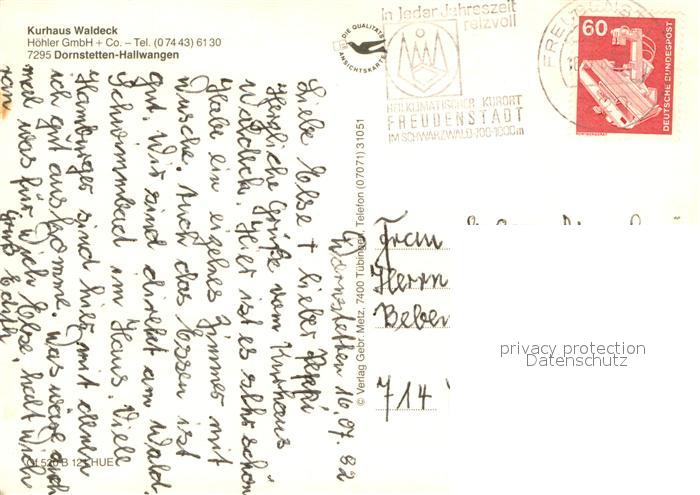 Kurhaus Waldeck
Höhler GmbH + Co. – Tel. (0 74 43) 61 30
7295 Dornstetten-Hallwangen
DIE QUALITÄTS
ANSICHTSKARTE
in jeder Jahreszeit
reizvoll
HEILKLIMATISCHER KURORT
FREUDENSTADT
IM SCHWARZWALD·700-1000m
FREUDENST
60
DEUTSCHE BUNDESPOST
Dornstetten 16.07.82
Liebe Else + lieber Peppi
Herzliche Grüße vom Kurhaus
Waldeck. Hier ist es sehr schön
Habe ein eigenes Zimmer mit
Dusche. Auch das Essen ist
gut. Wir sind direkt am Wald.
Schwimmbad im Haus. Viele
Hamburger sind hier, mit denen
ich gut auskomme. Das wäre auch
mal was für Dich Else, halt Dich
Gruß Edith
© Verlag Gebr. Metz, 7400 Tübingen, Telefon (07071) 31051
Frau
Herrn
Beber
714
privacy protection
Datenschutz